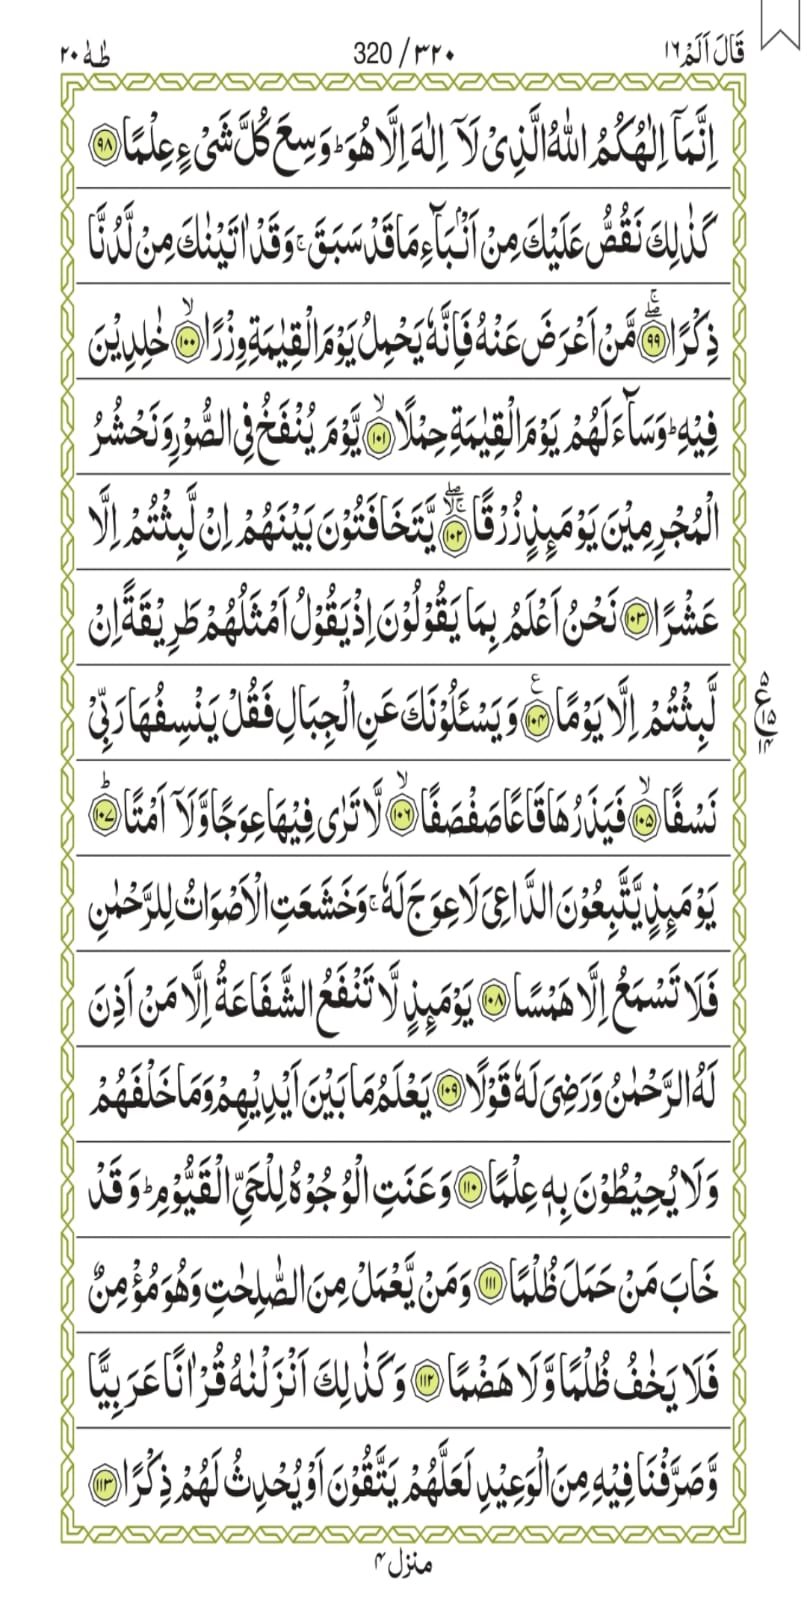 طٰهٰ ۲۰
320 / ۳۲۰
قَالَ اَلَمْ ۱۶
اِنَّمَاۤ اِلٰهُكُمُ اللّٰهُ الَّذِیْ لَاۤ اِلٰهَ اِلَّا هُوَ ؕ وَسِعَ كُلَّ شَیْءٍ عِلْمًا ﴿۹۸﴾
كَذٰلِكَ نَقُصُّ عَلَیْكَ مِنْ اَنْۢبَآءِ مَا قَدْ سَبَقَ ۚ وَقَدْ اٰتَیْنٰكَ مِنْ لَّدُنَّا
ذِكْرًا ﴿ۖۚ۹۹﴾ مَّنْ اَعْرَضَ عَنْهُ فَاِنَّهٗ یَحْمِلُ یَوْمَ الْقِیٰمَةِ وِزْرًا ﴿ۙ۱۰۰﴾ خٰلِدِیْنَ
فِیْهِ ؕ وَسَآءَ لَهُمْ یَوْمَ الْقِیٰمَةِ حِمْلًا ﴿ۙ۱۰۱﴾ یَّوْمَ یُنْفَخُ فِی الصُّوْرِ وَنَحْشُرُ
الْمُجْرِمِیْنَ یَوْمَىِٕذٍ زُرْقًا ﴿ۚۖ۱۰۲﴾ یَّتَخَافَتُوْنَ بَیْنَهُمْ اِنْ لَّبِثْتُمْ اِلَّا
عَشْرًا ﴿۱۰۳﴾ نَحْنُ اَعْلَمُ بِمَا یَقُوْلُوْنَ اِذْ یَقُوْلُ اَمْثَلُهُمْ طَرِیْقَةً اِنْ
لَّبِثْتُمْ اِلَّا یَوْمًا ﴿۱۰۴﴾ ع وَیَسْـَٔلُوْنَكَ عَنِ الْجِبَالِ فَقُلْ یَنْسِفُهَا رَبِّیْ
۵
ع ۱۵
۱۴
نَسْفًا ﴿ۙ۱۰۵﴾ فَیَذَرُهَا قَاعًا صَفْصَفًا ﴿ۙ۱۰۶﴾ لَّا تَرٰی فِیْهَا عِوَجًا وَّلَاۤ اَمْتًا ﴿ؕ۱۰۷﴾
یَوْمَىِٕذٍ یَّتَّبِعُوْنَ الدَّاعِیَ لَا عِوَجَ لَهٗ ۚ وَخَشَعَتِ الْاَصْوَاتُ لِلرَّحْمٰنِ
فَلَا تَسْمَعُ اِلَّا هَمْسًا ﴿۱۰۸﴾ یَوْمَىِٕذٍ لَّا تَنْفَعُ الشَّفَاعَةُ اِلَّا مَنْ اَذِنَ
لَهُ الرَّحْمٰنُ وَرَضِیَ لَهٗ قَوْلًا ﴿۱۰۹﴾ یَعْلَمُ مَا بَیْنَ اَیْدِیْهِمْ وَمَا خَلْفَهُمْ
وَلَا یُحِیْطُوْنَ بِهٖ عِلْمًا ﴿۱۱۰﴾ وَعَنَتِ الْوُجُوْهُ لِلْحَیِّ الْقَیُّوْمِ ؕ وَقَدْ
خَابَ مَنْ حَمَلَ ظُلْمًا ﴿۱۱۱﴾ وَمَنْ یَّعْمَلْ مِنَ الصّٰلِحٰتِ وَهُوَ مُؤْمِنٌ
فَلَا یَخٰفُ ظُلْمًا وَّلَا هَضْمًا ﴿۱۱۲﴾ وَكَذٰلِكَ اَنْزَلْنٰهُ قُرْاٰنًا عَرَبِیًّا
وَّصَرَّفْنَا فِیْهِ مِنَ الْوَعِیْدِ لَعَلَّهُمْ یَتَّقُوْنَ اَوْ یُحْدِثُ لَهُمْ ذِكْرًا ﴿۱۱۳﴾
منزل ۴